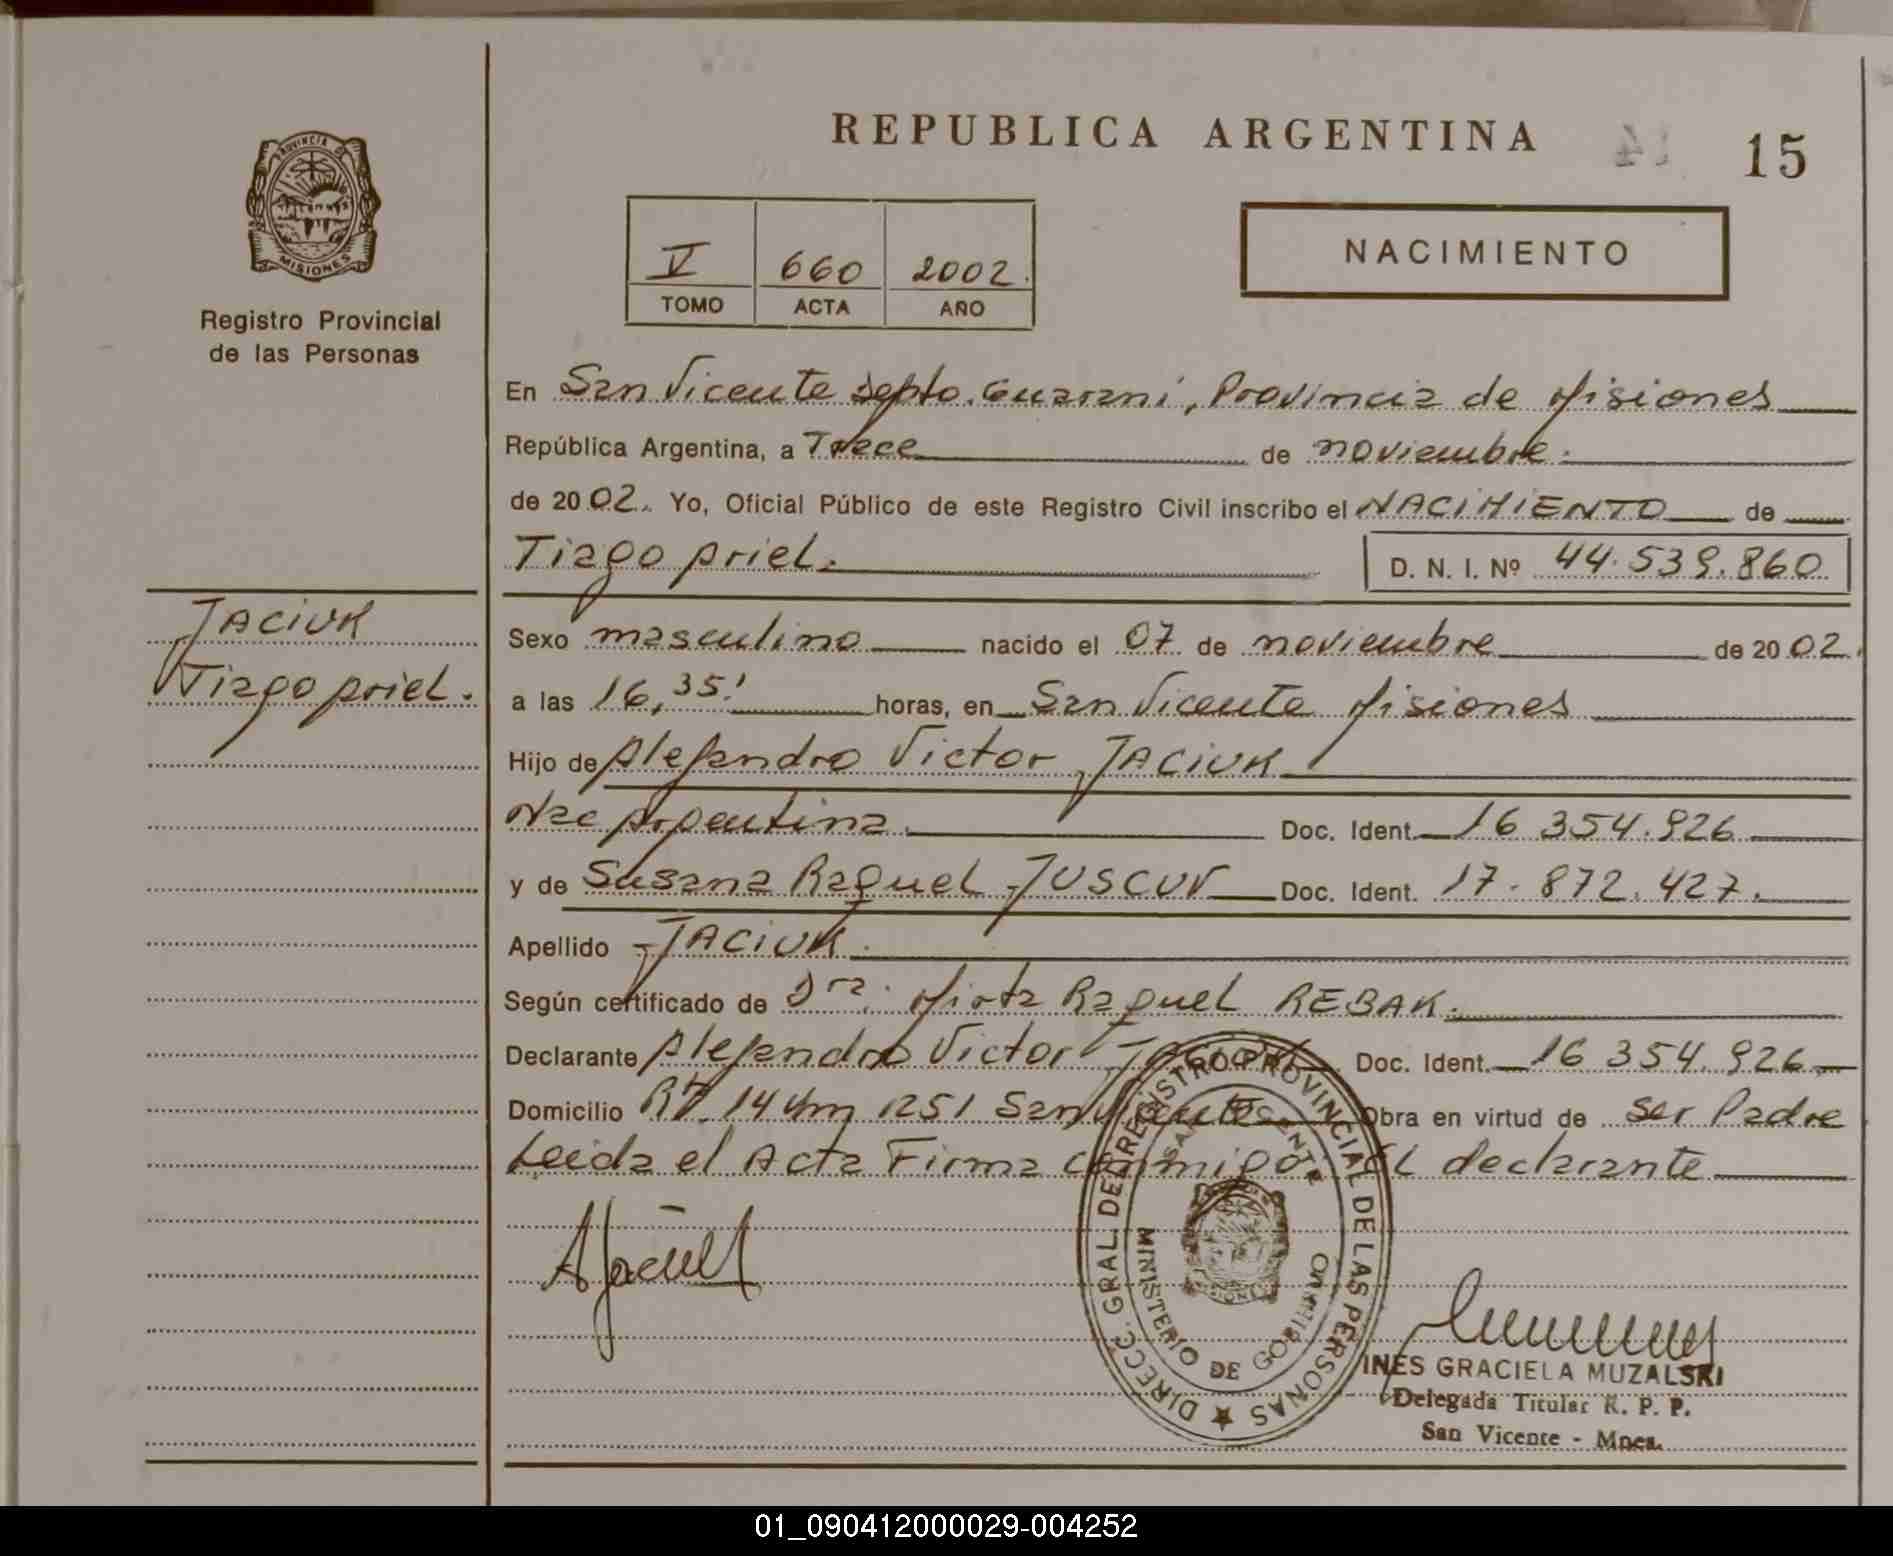 REPUBLICA ARGENTINA
15
PROVINCIA DE
MISIONES
Registro Provincial
de las Personas
V 660 2002.
TOMO ACTA AÑO
NACIMIENTO
En San Vicente Depto. Guaraní, Provincia de Misiones
República Argentina, a Trece de noviembre.
de 2002. Yo, Oficial Público de este Registro Civil inscribo el NACIMIENTO de
Tiago Ariel. D. N. I. Nº 44.539.860
JACIUK
Tiago Ariel.
Sexo masculino nacido el 07 de noviembre de 2002.
a las 16,35' horas, en San Vicente Misiones
Hijo de Alejandro Victor JACIUK
Nac Argentina. Doc. Ident. 16 354.926
y de Susana Raquel JUSCUV Doc. Ident. 17.872.427.
Apellido JACIUK.
Según certificado de Dra. Mirta Raquel REBAK.
Declarante Alejandro Victor Jaciuk Doc. Ident. 16 354.926
Domicilio 14 Km 1251 San Vicente Obra en virtud de ser Padre
Leida el Acta Firma conmigo: EL declarante
DIRECC. GRAL. DE REGISTRO PROVINCIAL DE LAS PERSONAS
SAN VICENTE
MINISTERIO DE GOBIERNO
INES GRACIELA MUZALSKI
Delegada Titular R. P. P.
San Vicente - Mnes.
01_090412000029-004252